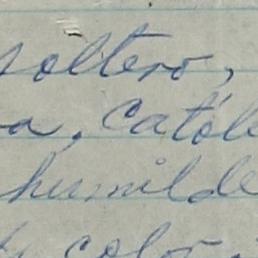 soltero,
a, Católi
humilde
color